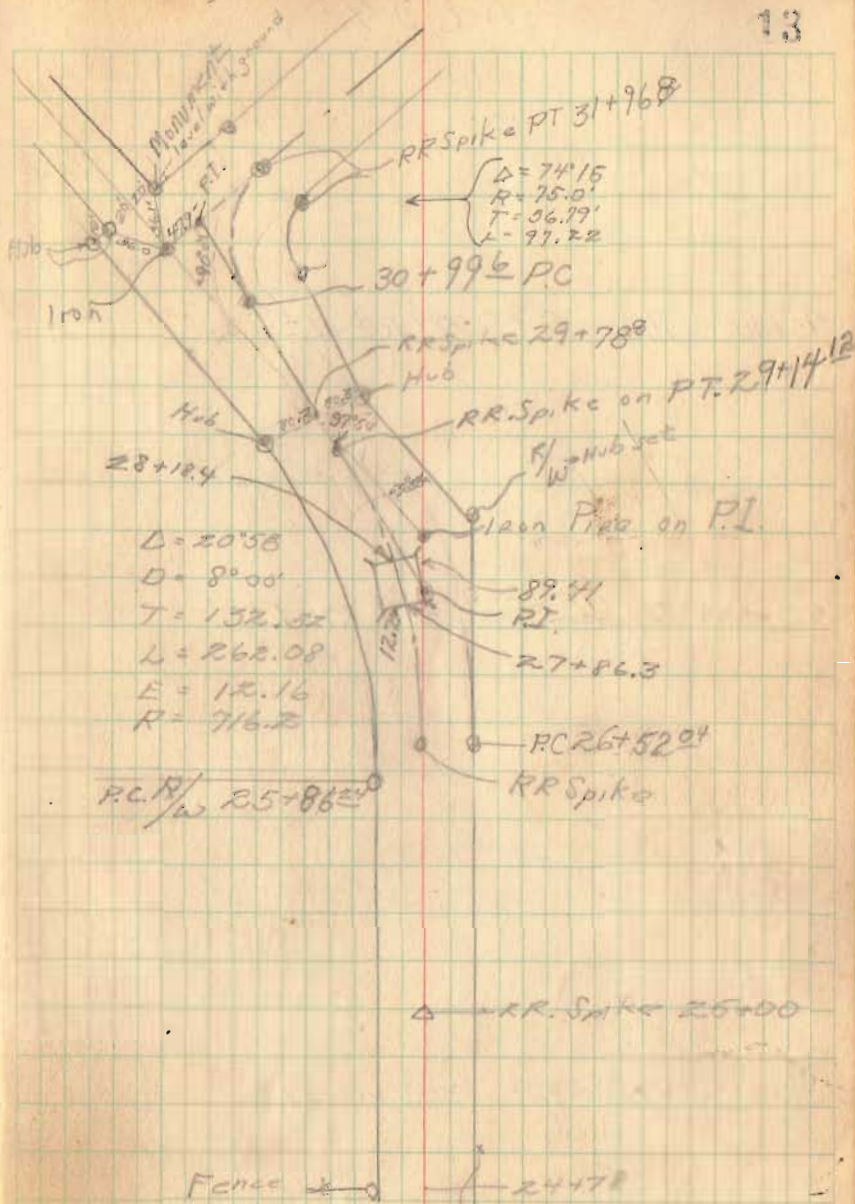 13
Monument
level with ground
RR Spike PT 31+96⁸
Δ = 74°15
R = 75.0'
T = 56.79'
L = 97.22
P.I.
Hub
Iron
30+99⁶ P.C
RR Spike 29+78⁸
Hub
Hub
RR. Spike on PT. 29+14¹²
R/W Hub set
28+18.4
Iron Pipe on P.I.
Δ = 20°58
D = 8°00'
T = 132.52
L = 262.08
E = 12.16
R = 716.2
89.41
P.I.
27+86.3
P.C 26+52⁰⁴
RR Spike
P.C. R/W 25+86
RR. Spike 25+00
Fence